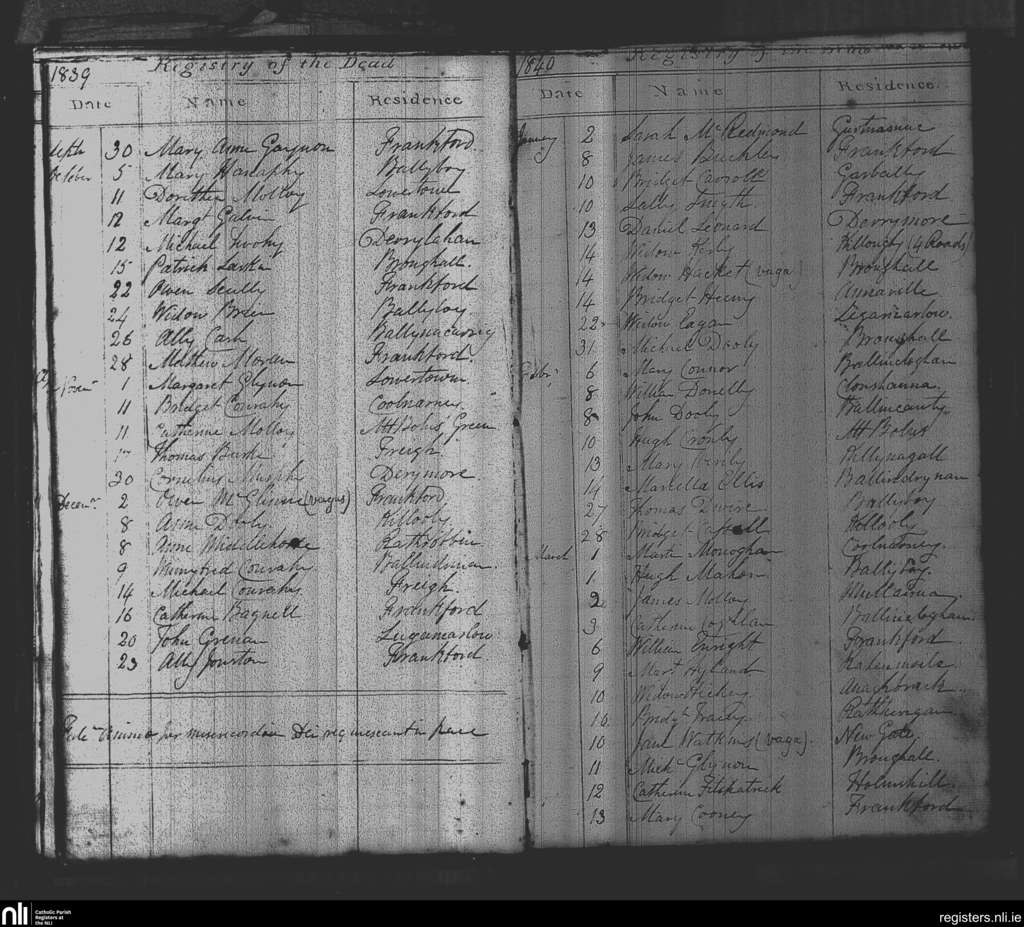 1839 Registry of the Dead
Date Name Residence
Septr 30 Mary Anne Gaynon Frankford.
October 5 Mary Hanaphy Ballyboy
11 Dorothea Molloy Lowertown
12 Margt Galvin Frankford
12 Michael Derrylahan
15 Patrick Larkin Broughall.
22 Owen Scully Frankford
24 Widow Brien Ballyboy
26 Ally Cash Ballynacarrig
28 Mathew Moran Frankford.
1 Margaret Glynon Lowertown
11 Bridget Conrahy Coolnarney
11 Catherine Molloy Mt Bolus Green
17 Thomas Burke Freigh.
30 Cornelius Murphy Derymore.
Decemr 2 Owen McGlinn (vagus) Frankford
8 Anne Dooly Killooly
8 Anne Middlehouse Rathrobbin
9 Winnyfred Conrahy
14 Michael Conrahy Freigh.
16 Catherine Bagnell Frankford
20 John Grenan Lugamarlow
23 Ally Jourton Frankford
per misericordiam Dei requiescant in pace
1840 Registry of
Date Name Residence.
January 2 Sarah McRedmond
8 James Buckley Frankford
10 Bridget Carroll Garbally
10 Sally Smyth Frankford
13 Daniel Leonard Derrymore
14 Widow Killough (4 Roads)
14 Widow Hacket (vaga) Broughall
14 Bridget Heeny Annaville
22 Widow Eagan Legamarlow.
31 Michael Dooly Broughall
6 Mary Connor Ballincloghan
8 William Donelly Clonshanna.
8 John Dooly
10 Hugh Cronly Mt Bolus
13 Mary
14 Marcella Ellis Ballindrynan
27 Thomas Devine Ballyboy
28 Bridget Killooly
March 1 Martin Monoghan Coolnarney.
1 Hugh Mahon Ballyboy.
2 James Molloy
3 Catherine Coghlan Ballincloghan
6 William Enright Frankford
9 Mart Hyland
10 Widow Hickey
10 Bridgt
10 Jane Watkins (vaga). New Gate.
11 Michl Glynon Broughall.
12 Catherine Fitzpatrick Holmshill
13 Mary Cooney Frankford
nli Catholic Parish
Registers at
the NLI
registers.nli.ie